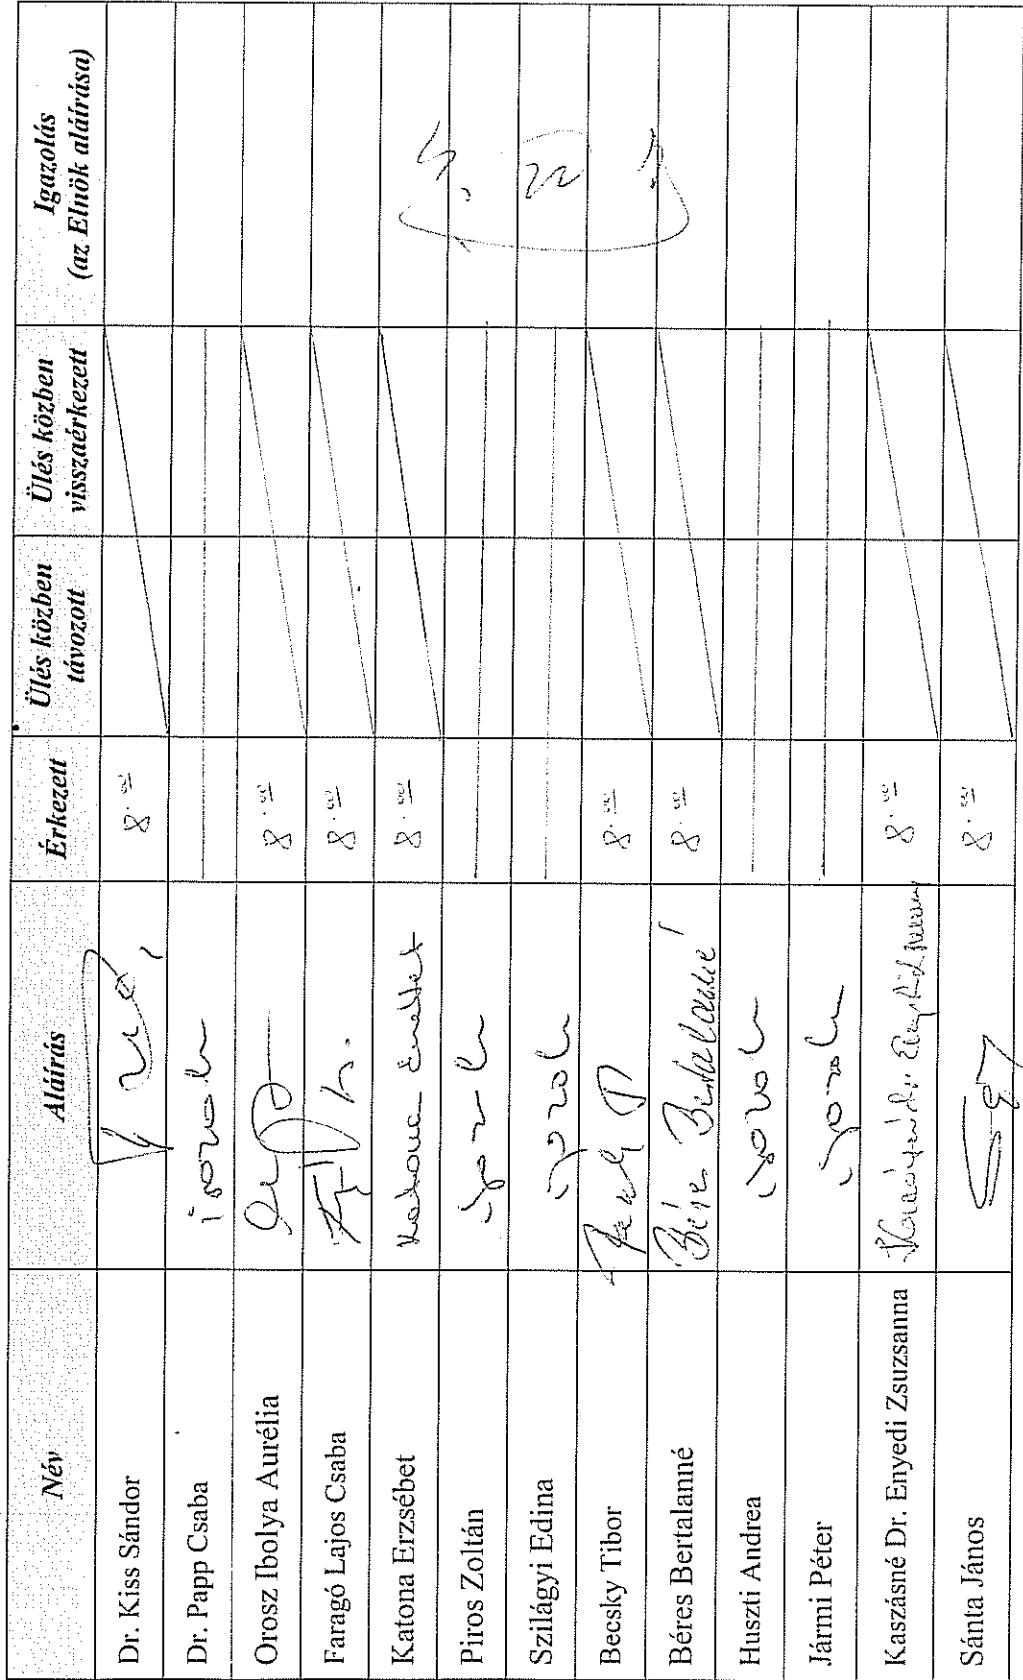 Név Aláírás Érkezett Ülés közben távozott Ülés közben visszaérkezett Igazolás (az Elnök aláírása)
Dr. Kiss Sándor 8.00
Dr. Papp Csaba igazolt
Orosz Ibolya Aurélia 8.00
Faragó Lajos Csaba 8.00
Katona Erzsébet Katona Erzsébet 8.00
Piros Zoltán igazolt
Szilágyi Edina igazolt
Becsky Tibor 8.00
Béres Bertalanné Béres Bertalanné 8.00
Huszti Andrea igazolt
Jármi Péter igazolt
Kaszásné Dr. Enyedi Zsuzsanna Kaszásné dr. Enyedi Zsuzsanna 8.00
Sánta János 8.00